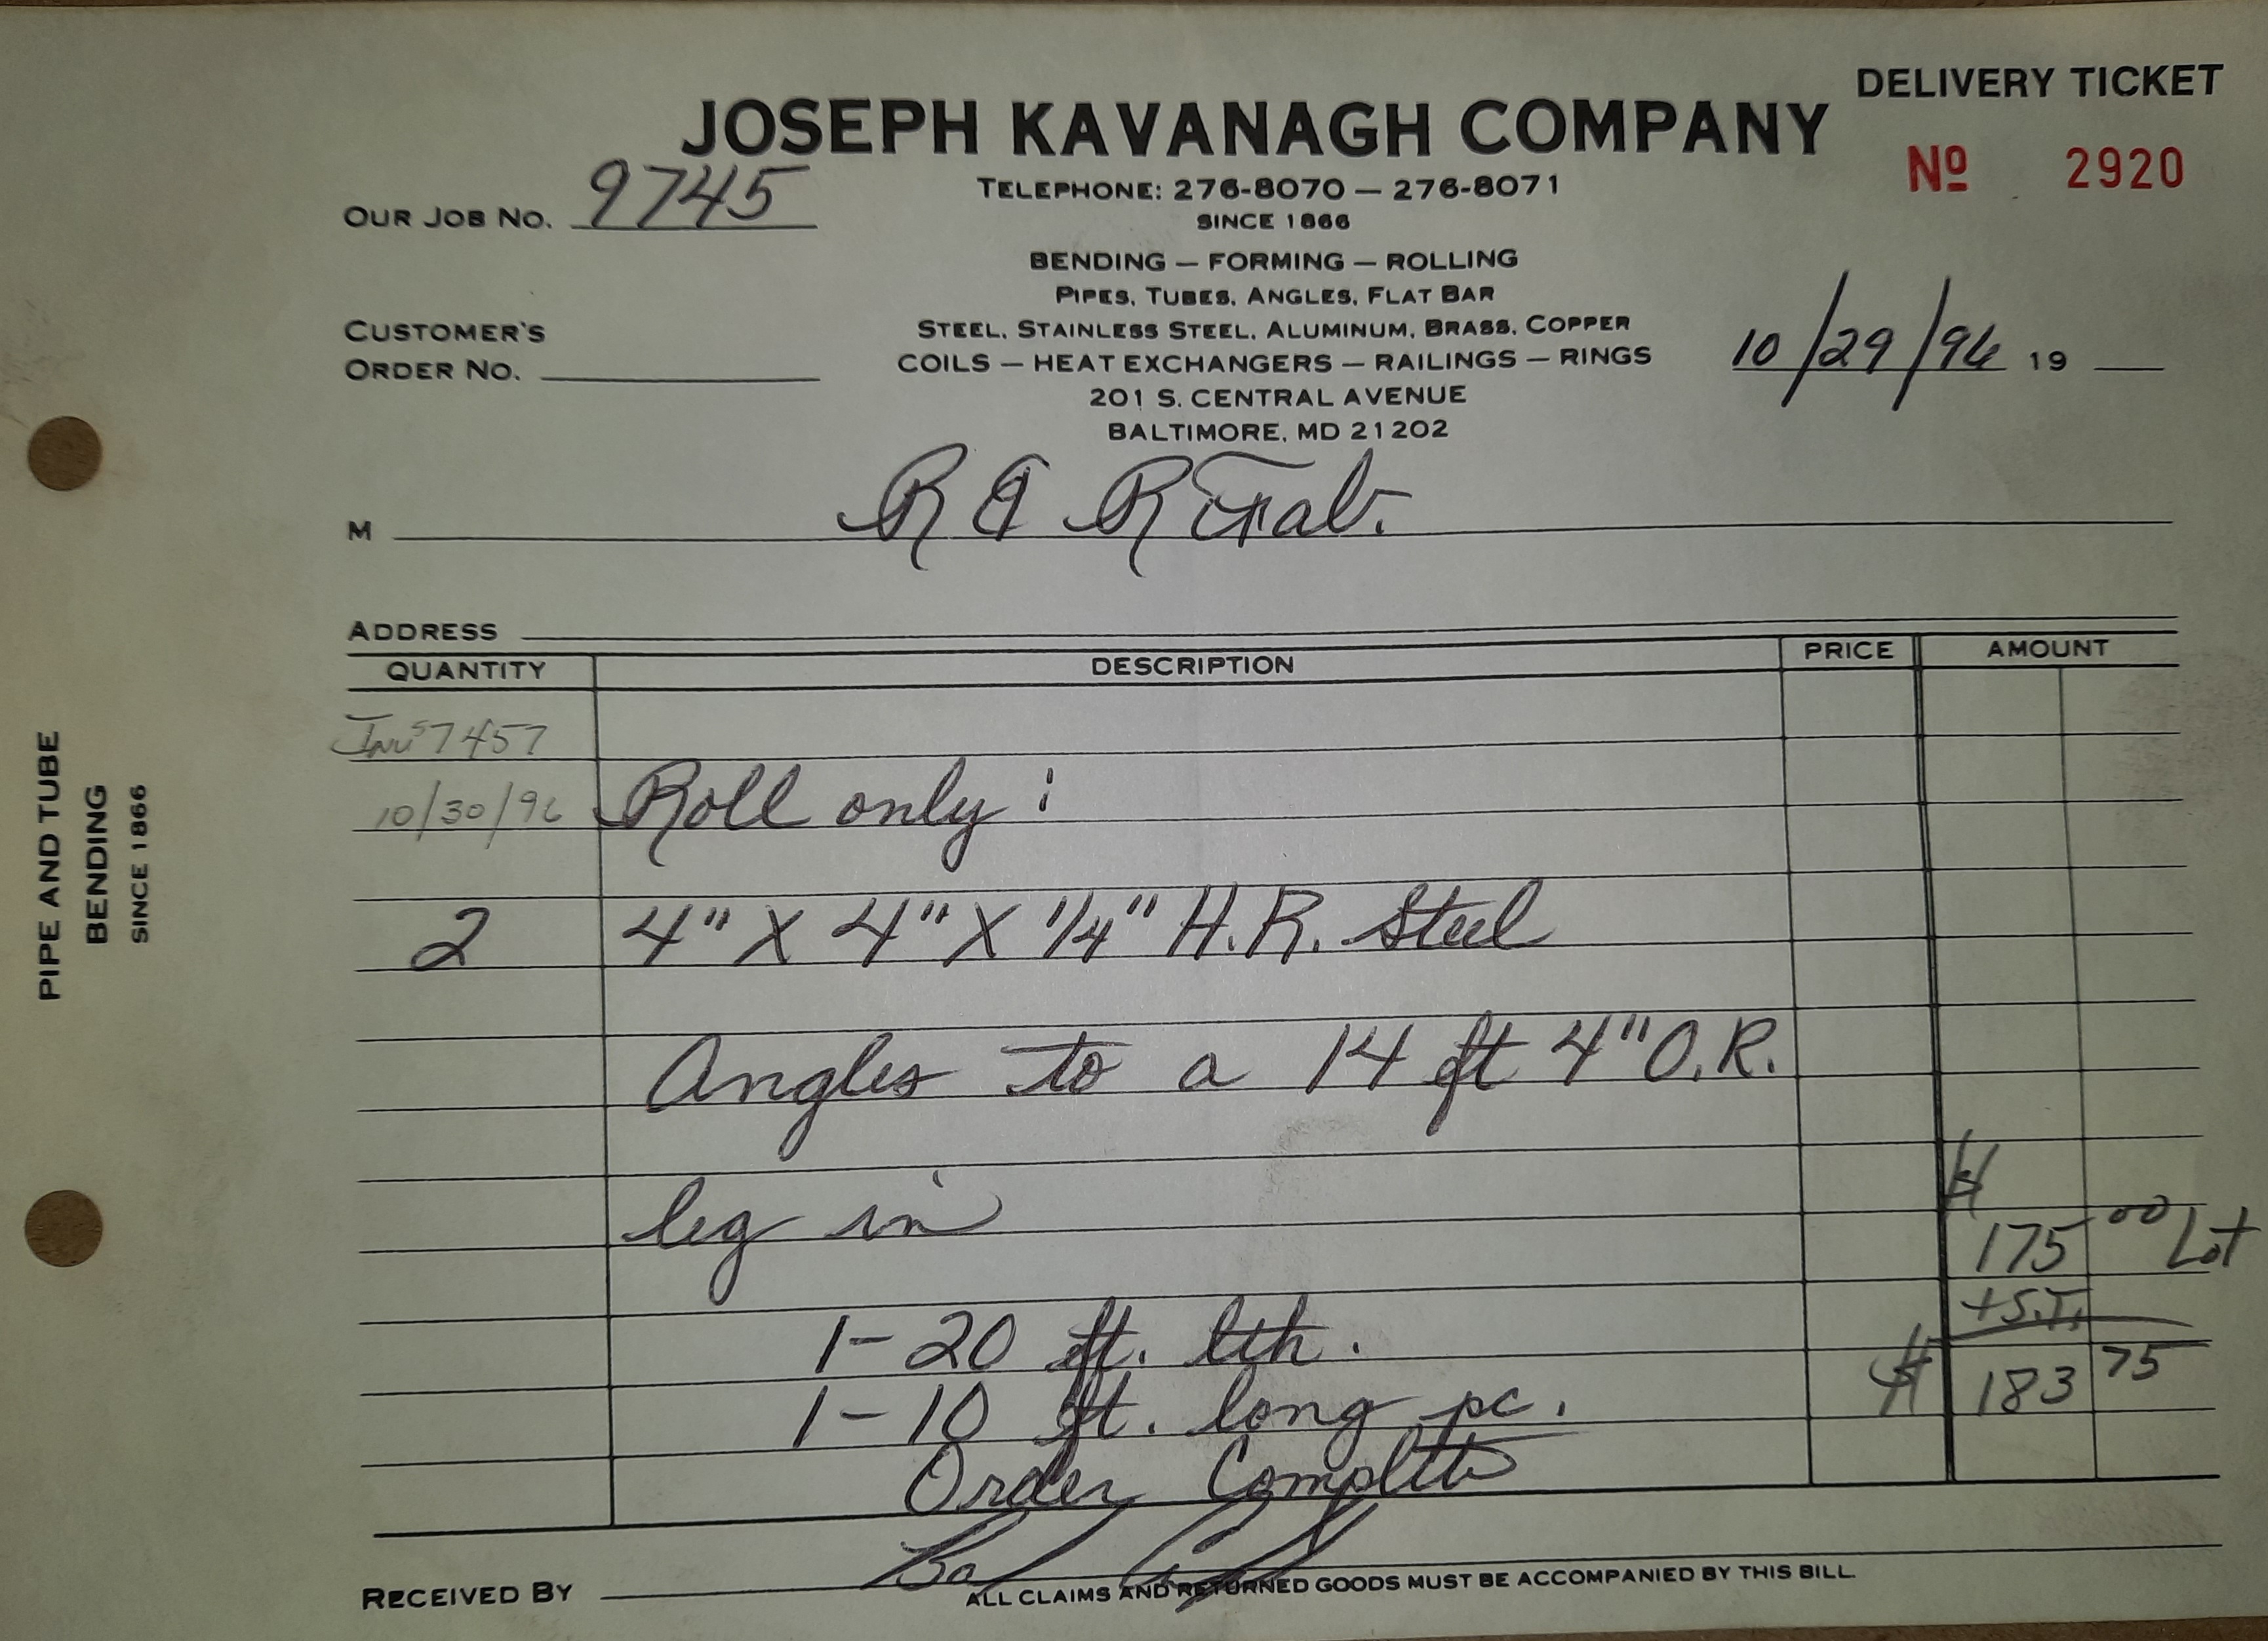 DELIVERY TICKET
JOSEPH KAVANAGH COMPANY
Nº 2920
OUR JOB NO. 9745
TELEPHONE: 276-8070 — 276-8071
SINCE 1866
BENDING — FORMING — ROLLING
PIPES, TUBES, ANGLES, FLAT BAR
CUSTOMER'S
ORDER NO.
STEEL, STAINLESS STEEL, ALUMINUM, BRASS, COPPER
COILS — HEAT EXCHANGERS — RAILINGS — RINGS
10/29/96 19
201 S. CENTRAL AVENUE
BALTIMORE, MD 21202
M R & R Fab.
ADDRESS
QUANTITY DESCRIPTION PRICE AMOUNT
7457
10/30/96 Roll only:
2 4" X 4" X 1/4" H.R. Steel
Angles to a 14 ft 4" O.R.
leg in
$
175 00 Lot
+S.T.
1-20 ft. lth.
$ 183 75
1-10 ft. long pc.
Order Complete
RECEIVED BY
ALL CLAIMS AND RETURNED GOODS MUST BE ACCOMPANIED BY THIS BILL.
PIPE AND TUBE
BENDING
SINCE 1866